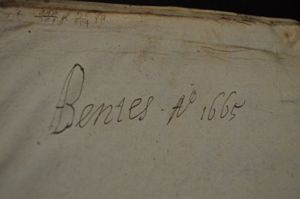 Bentes. Aº 1665